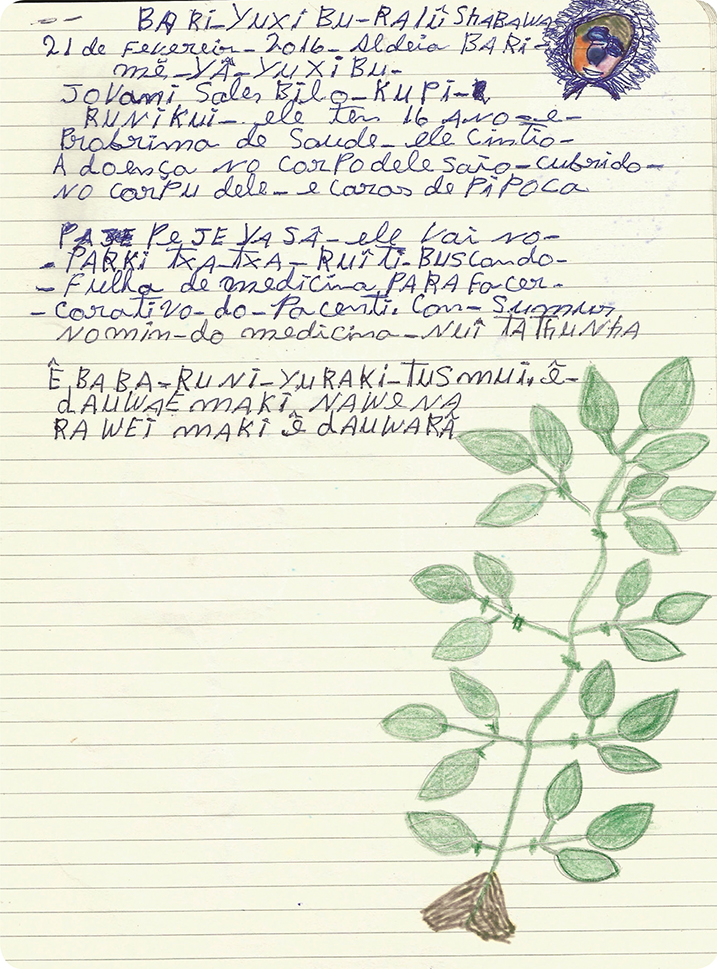 BARI-YUXIBU-RALÛ ShABAWA
21 de Fevereiro-2016-Aldeia BARI-
mẽ-YÂ-YUXIBU-
JOVAni Sales Bilo-KUPI-
BUNIKUI- ele ten 16 ANO-e-
Probrima de Saude-ele Cintio-
A doença NO CORPO dele saio-cubrido-
NO CORPU dele-e caras de PIPOCA
PeJE YASÂ-ele Vai NO-
-PARKI TXA-TXA-RUÎTI-BUSCANDO-
-Fulha de medicina PARA FaCer-
-Corativo-do-Pacenti. Con-Summus
NOmin-do medicina-NUÎ TATHUNhA
Ê BABA-RUNI-YURAKI-TUSMUI, ê-
dAUWAE MAKI, NAWENA
RAWEÎ MAKI Ê dAUWARÂ